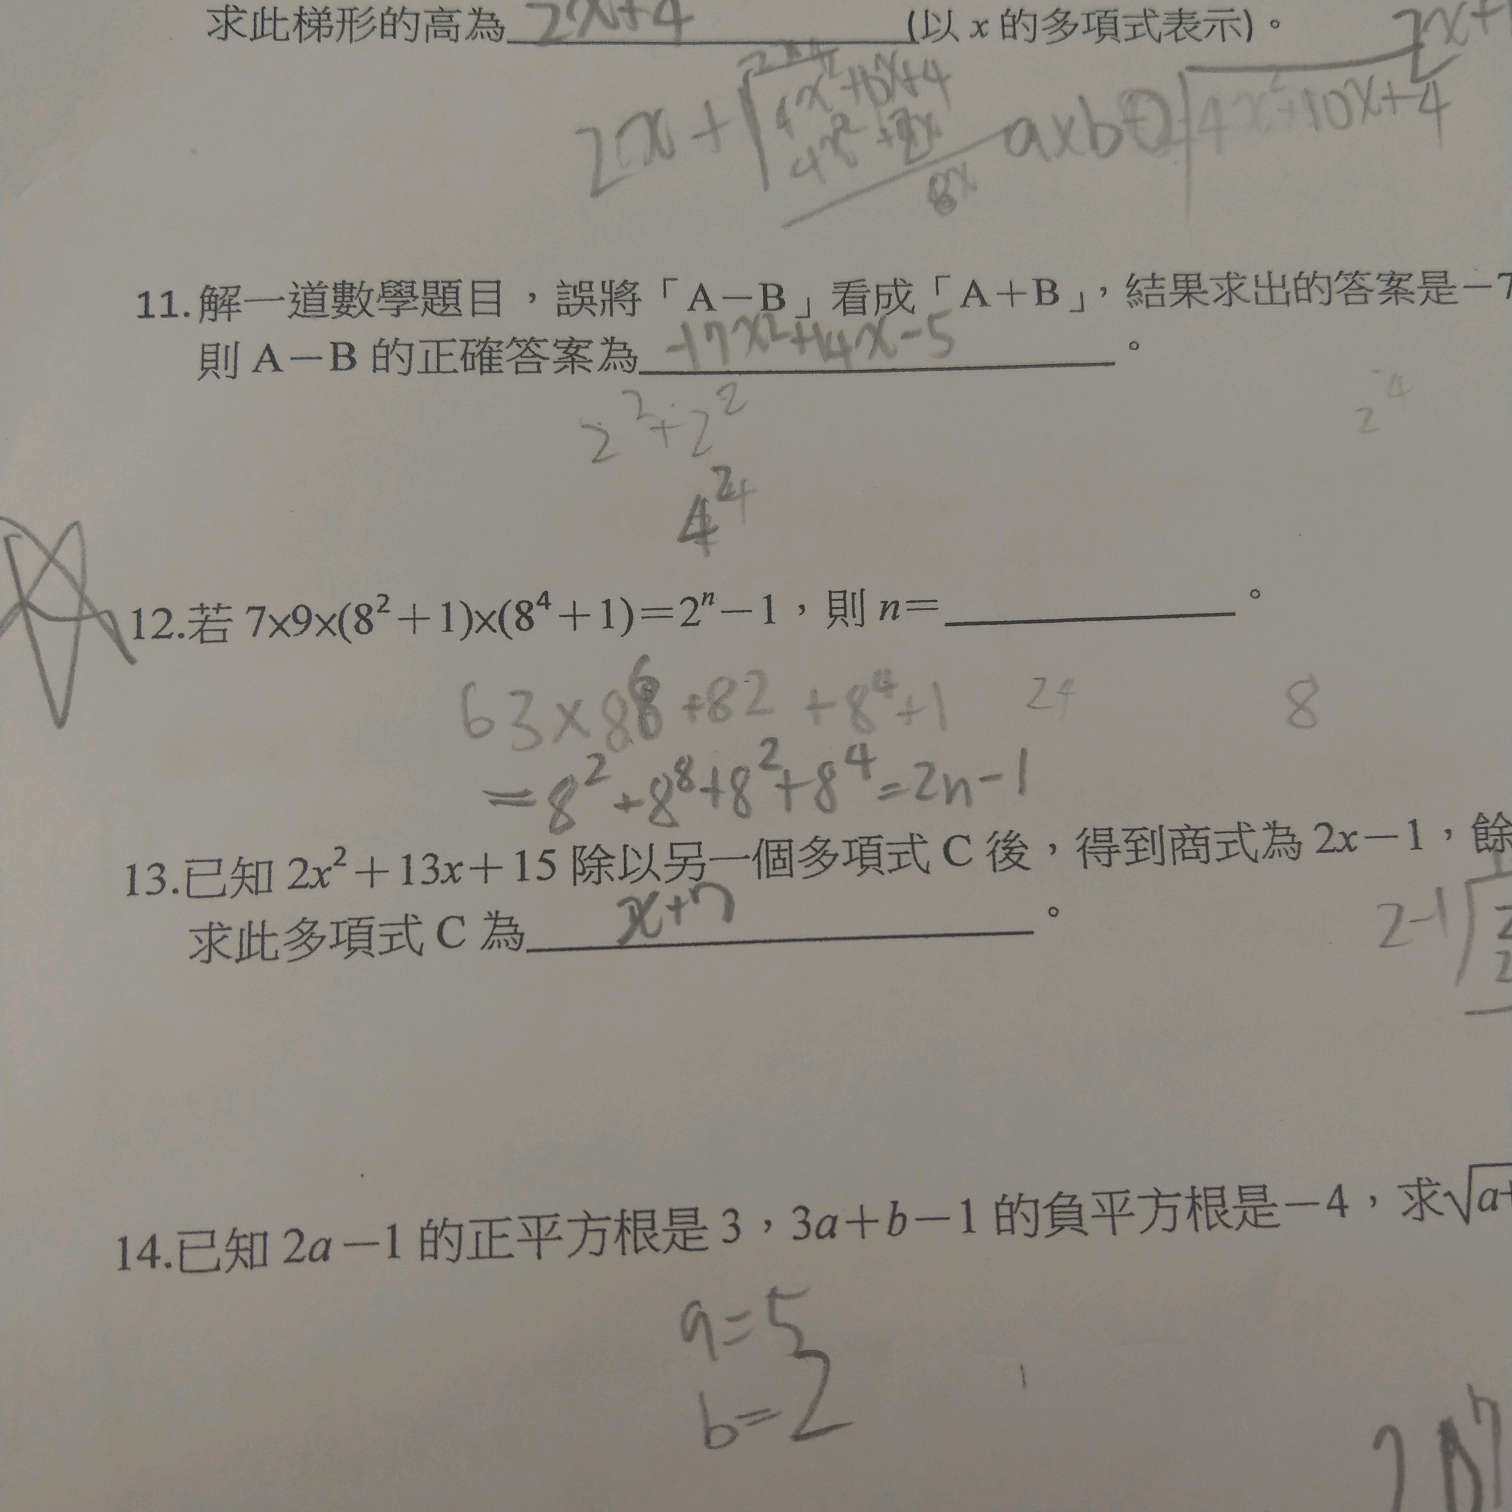 求此梯形的高為 2x+4 (以 x 的多項式表示)。
11.解一道數學題目，誤將「A－B」看成「A＋B」，結果求出的答案是－7
則 A－B 的正確答案為 -17x2+14x-5 。
2²+2²
2⁴
12.若 7×9×(8²＋1)×(8⁴＋1)＝2ⁿ－1，則 n＝ 。
24
8
=8²+8⁸+8²+8⁴=2n-1
13.已知 2x²＋13x＋15 除以另一個多項式 C 後，得到商式為 2x－1，餘
求此多項式 C 為 x+7 。
2-1
14.已知 2a－1 的正平方根是 3，3a＋b－1 的負平方根是－4，求√a+
a=5
b=2